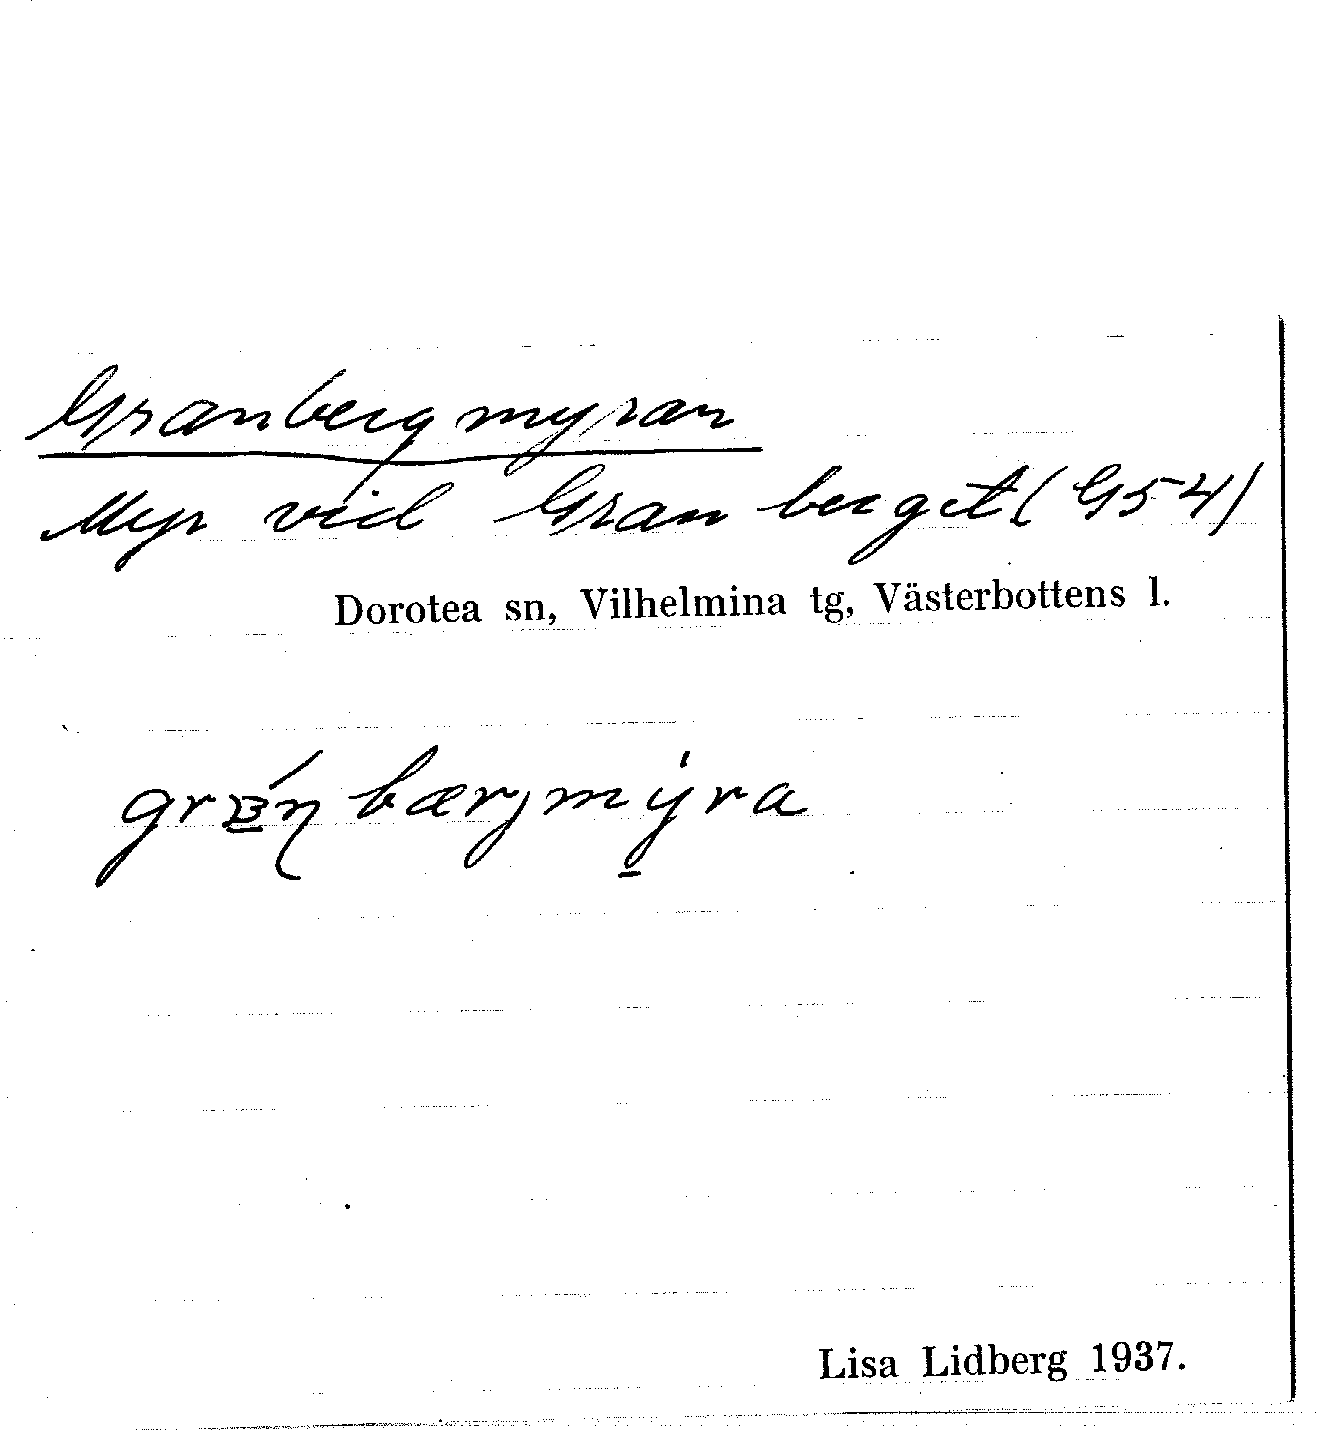 Granbergmyran
Myr vid Granberget (G54)
Dorotea sn, Vilhelmina tg, Västerbottens l.
grᴃ̱́ŋbærjmy̱̍ra
Lisa Lidberg 1937.